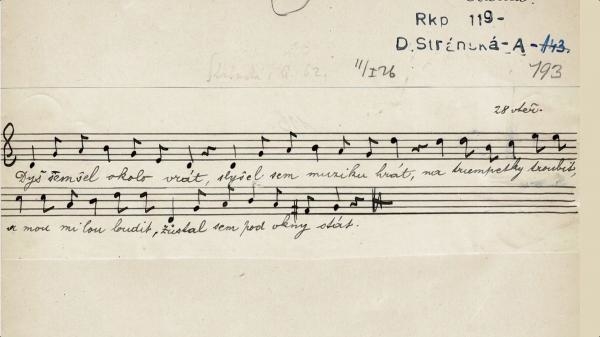 Rkp 119-
D. Stránská - A - 143.
11/I 26
193
28 vteř.
Dyš sem šel okolo vrát, slyšel sem muziku hrát, na trumpetky troubit,
a mou milou loudit, zůstal sem pod okny stát.